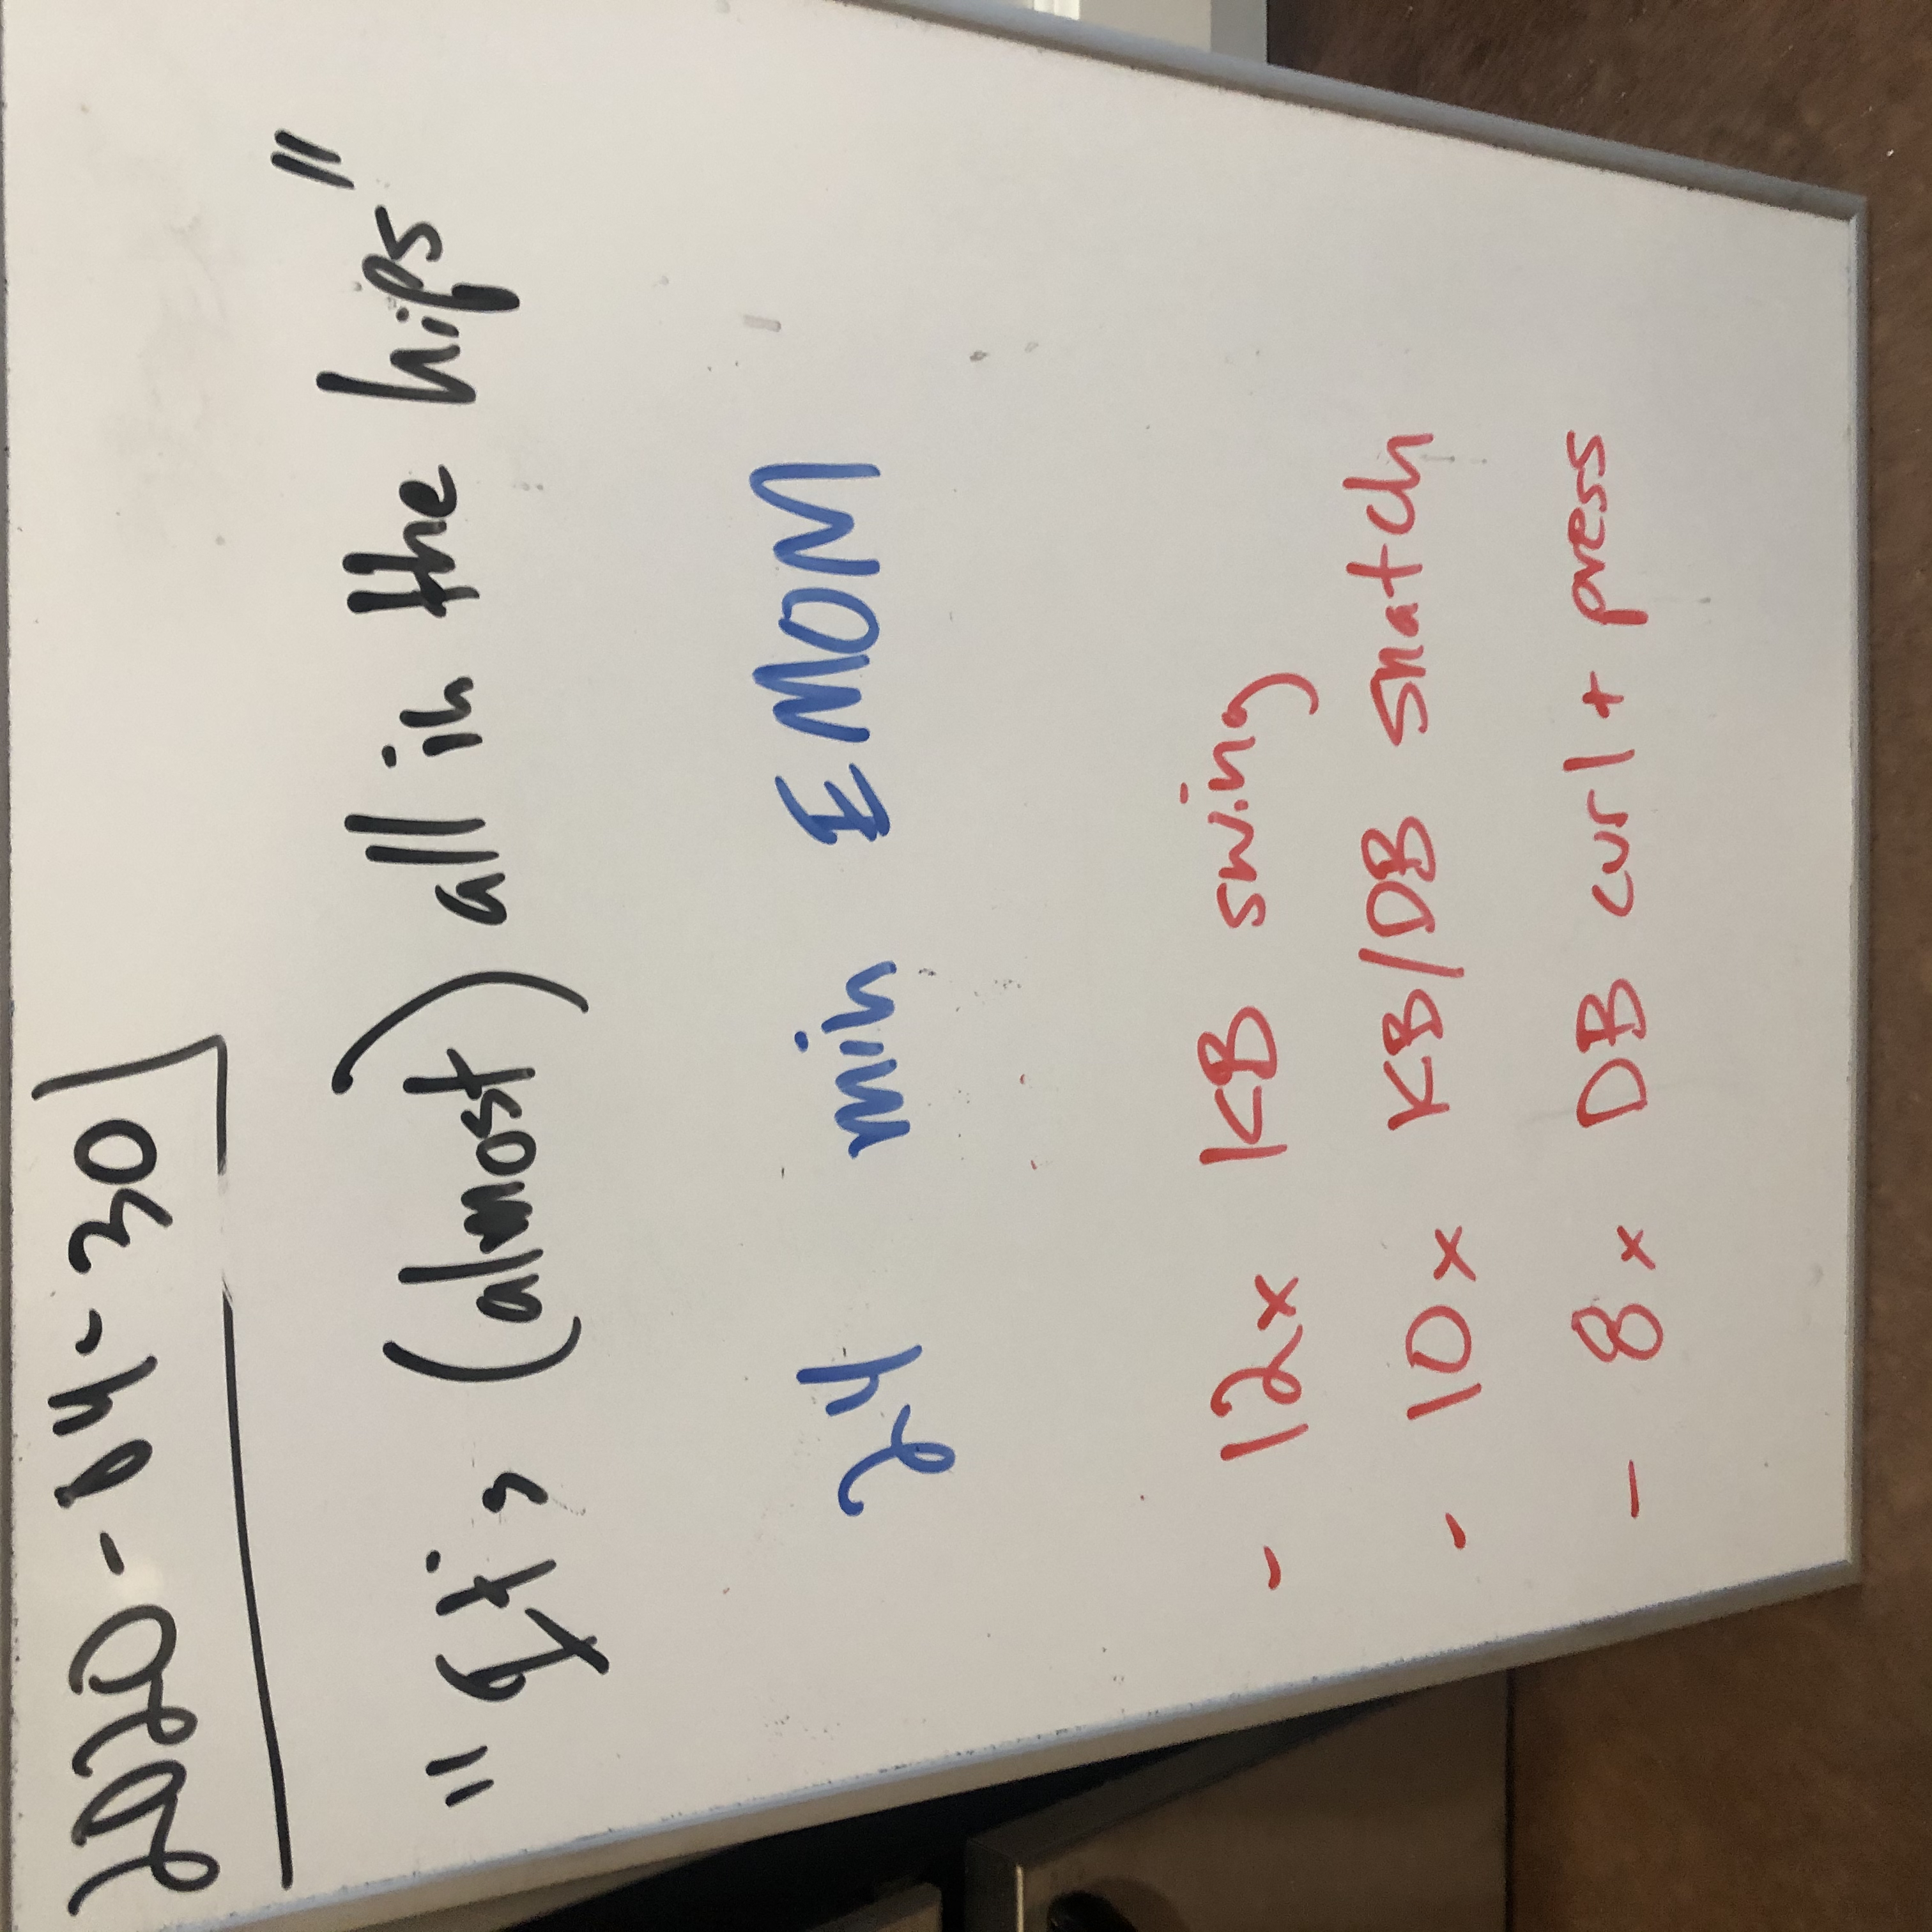 2020-04-30
"It's (almost) all in the hips"
24 min EMOM
- 12x KB swing
- 10x KB/DB snatch
- 8x DB curl + press